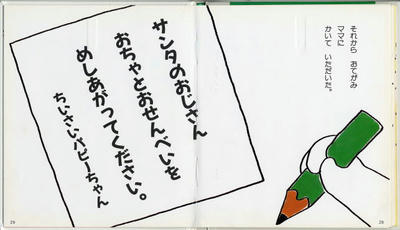 それから おてがみ
ママに
かいて いただいた。
サンタのおじさん
おちゃとおせんべいを
めしあがってください。
ちいさいパピーちゃん
29
28